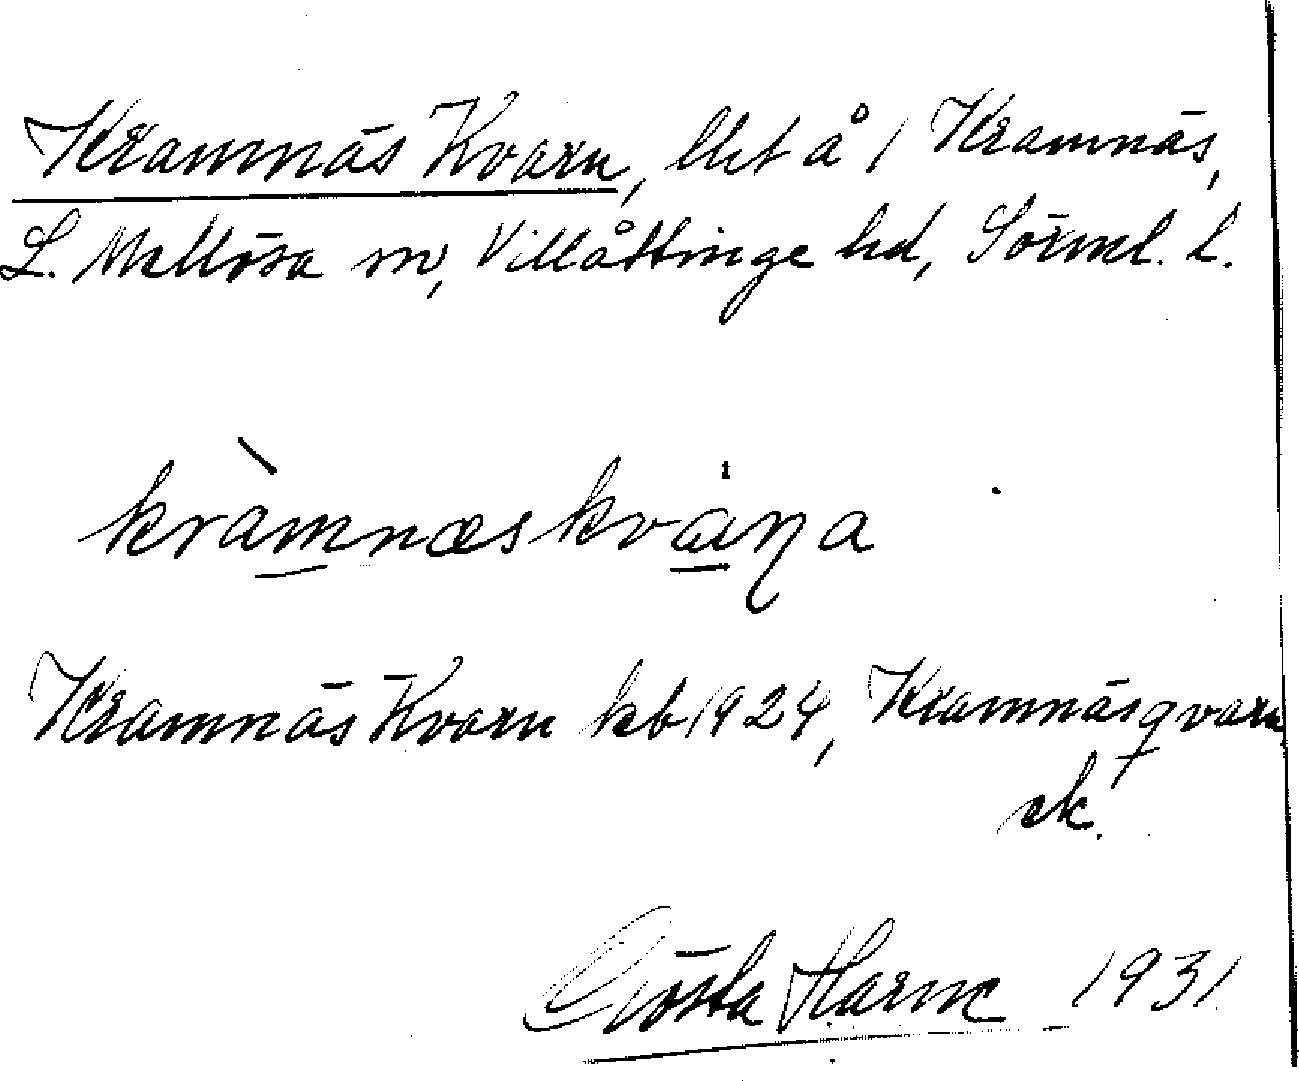 Kramnäs Kvarn, lht å 1 Kramnäs,
L. Mellösa sn, Villåttinge hd, Sörml. l.
kràmnæskvàṇa
Kramnäs Kvarn kb 1924, Kramnäsqvarn
ek.
Gösta Harne 1931